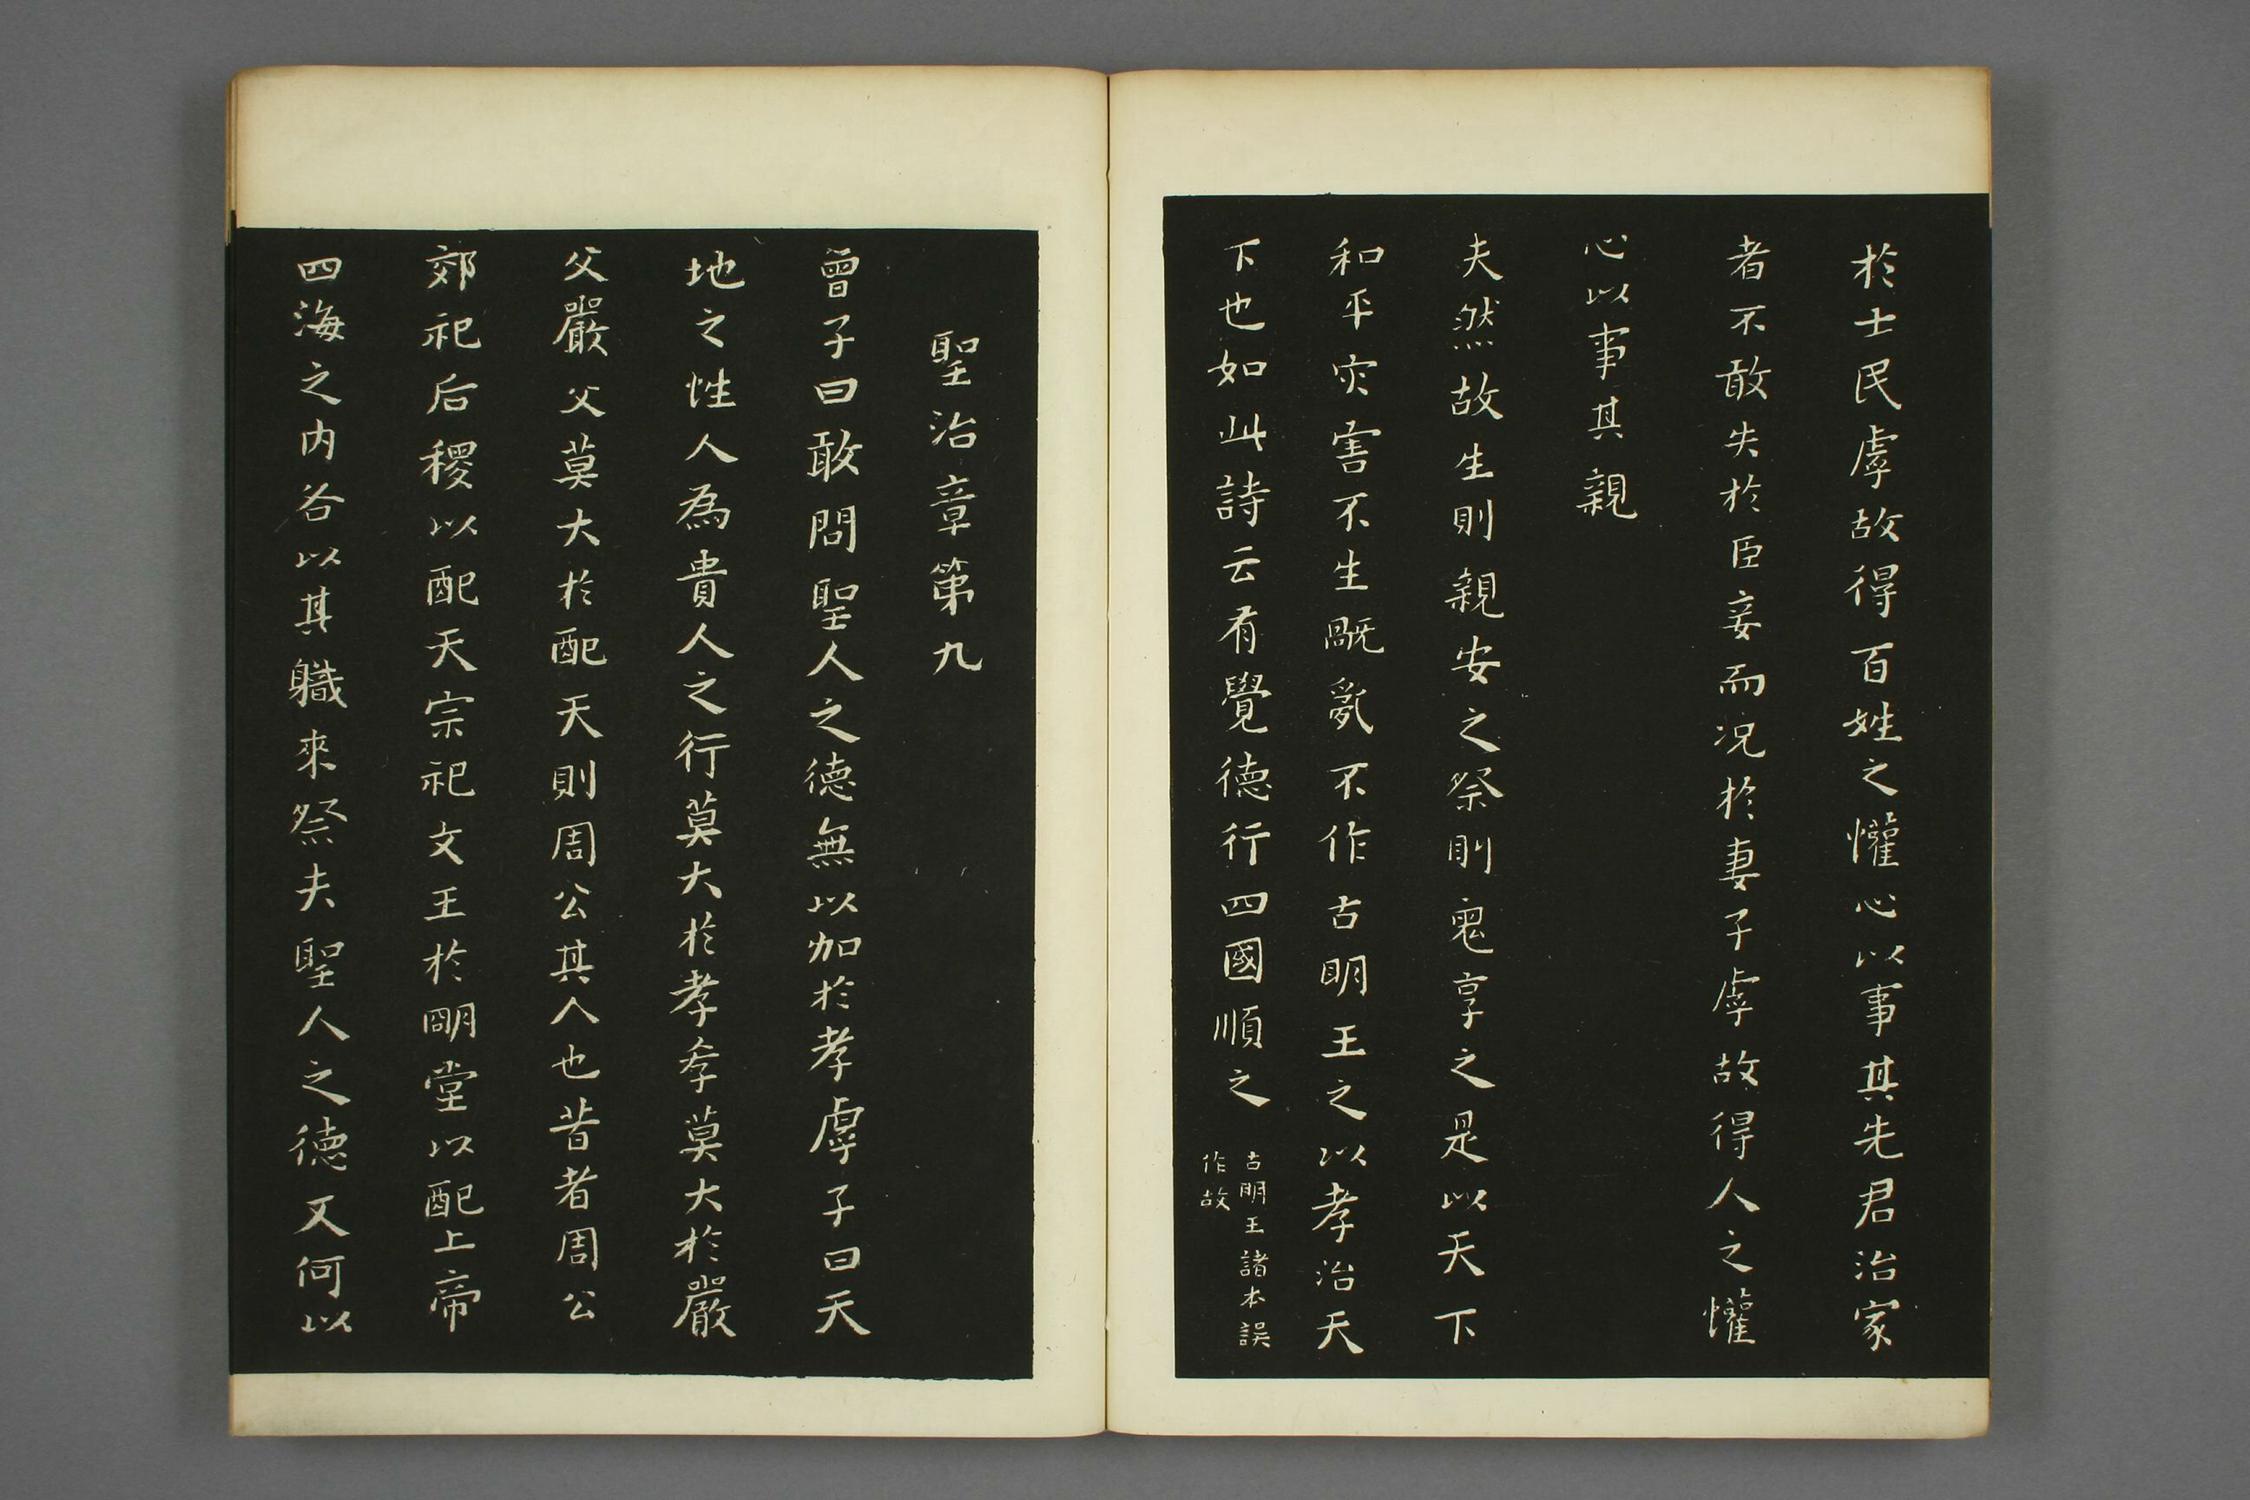 於士民虖故得百姓之懽心以事其先君治家
者不敢失於臣妾而况於妻子虖故得人之懽
心以事其親
夫然故生則親安之祭則鬼享之是以天下
和平灾害不生䣛亂不作古明王之以孝治天
下也如此詩云有覺德行四國順之
古明王諸本誤
作故
聖治章第九
曾子曰敢問聖人之德無以加於孝虖子曰天
地之性人為貴人之行莫大於孝孝莫大於嚴
父嚴父莫大於配天則周公其人也昔者周公
郊祀后稷以配天宗祀文王於朙堂以配上帝
四海之内各以其職來祭夫聖人之德又何以